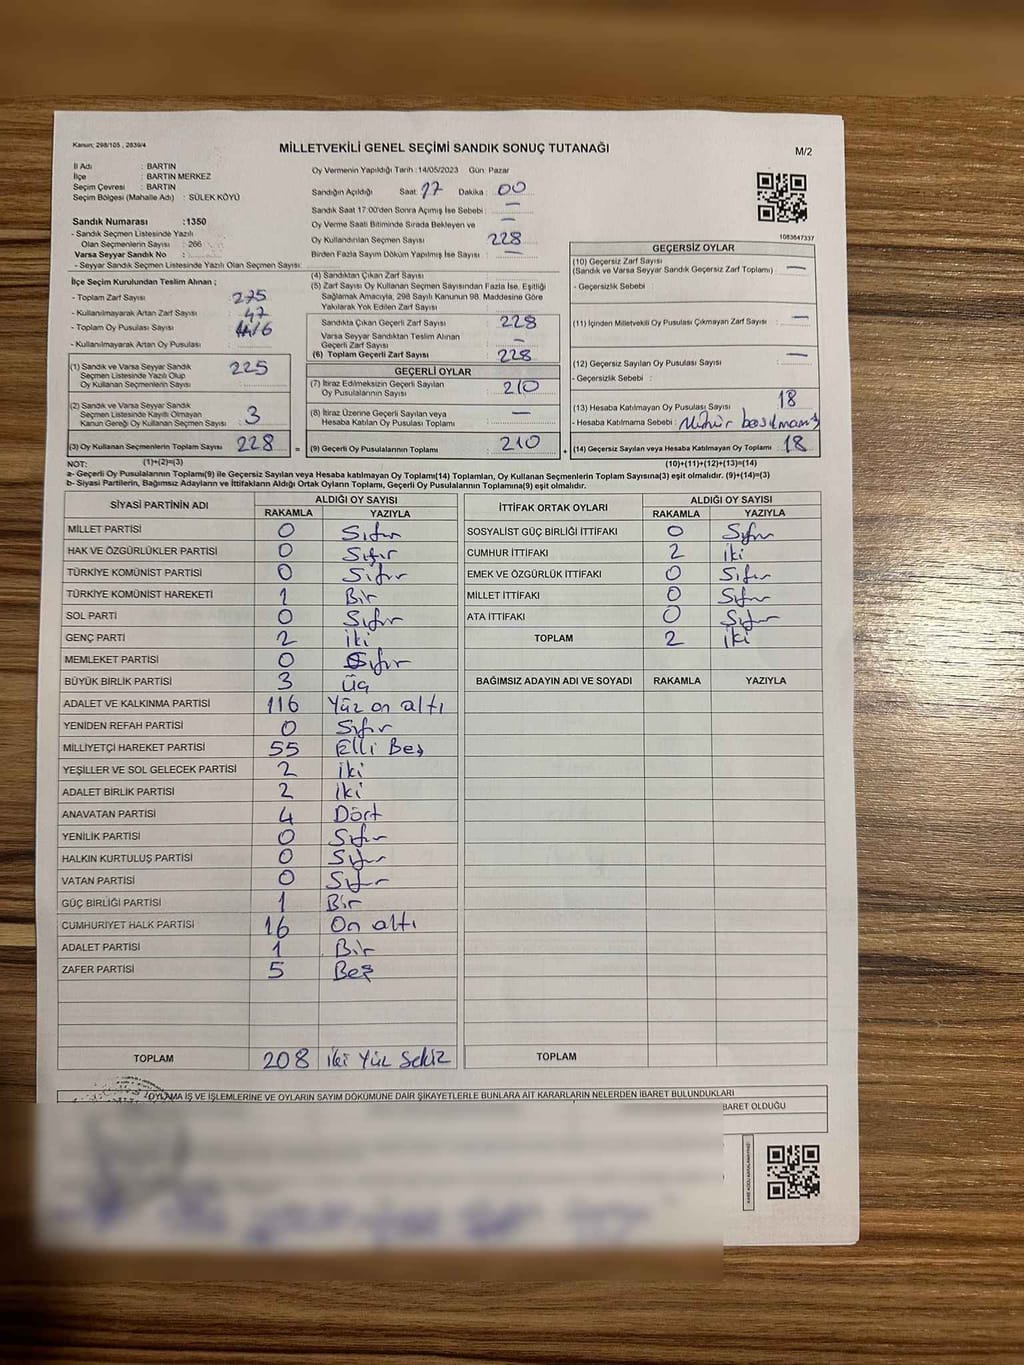 Kanun; 298/105 , 2839/4
MİLLETVEKİLİ GENEL SEÇİMİ SANDIK SONUÇ TUTANAĞI
M/2
İl Adı : BARTIN
İlçe : BARTIN MERKEZ
Seçim Çevresi : BARTIN
Seçim Bölgesi (Mahalle Adı) : SÜLEK KÖYÜ
Sandık Numarası :1350
- Sandık Seçmen Listesinde Yazılı
Olan Seçmenlerin Sayısı : 266
Varsa Seyyar Sandık No :
- Seyyar Sandık Seçmen Listesinde Yazılı Olan Seçmen Sayısı:
Oy Vermenin Yapıldığı Tarih :14/05/2023 Gün: Pazar
Sandığın Açıldığı Saat: 17 Dakika : 00
Sandık Saat 17:00'den Sonra Açımış İse Sebebi : —
Oy Verme Saati Bitiminde Sırada Bekleyen ve —
Oy Kullandırılan Seçmen Sayısı 228
Birden Fazla Sayım Döküm Yapılmış İse Sayısı : —
1083647337
İlçe Seçim Kurulundan Teslim Alınan ;
- Toplam Zarf Sayısı : 275
- Kullanılmayarak Artan Zarf Sayısı : 47
- Toplam Oy Pusulası Sayısı :
- Kullanılmayarak Artan Oy Pusulası :
(1) Sandık ve Varsa Seyyar Sandık
Seçmen Listesinde Yazılı Olup
Oy Kullanan Seçmenlerin Sayısı : 225
(2) Sandık ve Varsa Seyyar Sandık
Seçmen Listesinde Kayıtlı Olmayan
Kanun Gereği Oy Kullanan Seçmen Sayısı : 3
(3) Oy Kullanan Seçmenlerin Toplam Sayısı : 228
(4) Sandıktan Çıkan Zarf Sayısı :
(5) Zarf Sayısı Oy Kullanan Seçmen Sayısından Fazla İse, Eşitliği
Sağlamak Amacıyla, 298 Sayılı Kanunun 98. Maddesine Göre
Yakılarak Yok Edilen Zarf Sayısı :
Sandıkta Çıkan Geçerli Zarf Sayısı : 228
Varsa Seyyar Sandıktan Teslim Alınan
Geçerli Zarf Sayısı : —
(6) Toplam Geçerli Zarf Sayısı : 228
GEÇERLİ OYLAR
(7) İtiraz Edilmeksizin Geçerli Sayılan
Oy Pusulalarının Sayısı : 210
(8) İtiraz Üzerine Geçerli Sayılan veya
Hesaba Katılan Oy Pusulası Toplamı : —
= (9) Geçerli Oy Pusulalarının Toplamı : 210
GEÇERSİZ OYLAR
(10) Geçersiz Zarf Sayısı :
(Sandık ve Varsa Seyyar Sandık Geçersiz Zarf Toplamı) —
- Geçersizlik Sebebi :
(11) İçinden Milletvekili Oy Pusulası Çıkmayan Zarf Sayısı : —
(12) Geçersiz Sayılan Oy Pusulası Sayısı : —
- Geçersizlik Sebebi :
(13) Hesaba Katılmayan Oy Pusulası Sayısı : 18
- Hesaba Katılmama Sebebi : Mühür basılmamış
+ (14) Geçersiz Sayılan veya Hesaba Katılmayan Oy Toplamı : 18
NOT: (1)+(2)=(3)
(10)+(11)+(12)+(13)=(14)
a- Geçerli Oy Pusulalarının Toplamı(9) ile Geçersiz Sayılan veya Hesaba katılmayan Oy Toplamı(14) Toplamları, Oy Kullanan Seçmenlerin Toplam Sayısına(3) eşit olmalıdır. (9)+(14)=(3)
b- Siyasi Partilerin, Bağımsız Adayların ve İttifakların Aldığı Ortak Oyların Toplamı, Geçerli Oy Pusulalarının Toplamına(9) eşit olmalıdır.
SİYASİ PARTİNİN ADI ALDIĞI OY SAYISI
RAKAMLA YAZIYLA
MİLLET PARTİSİ 0 Sıfır
HAK VE ÖZGÜRLÜKLER PARTİSİ 0 Sıfır
TÜRKİYE KOMÜNİST PARTİSİ 0 Sıfır
TÜRKİYE KOMÜNİST HAREKETİ 1 Bir
SOL PARTİ 0 Sıfır
GENÇ PARTİ 2 iki
MEMLEKET PARTİSİ 0 Sıfır
BÜYÜK BİRLİK PARTİSİ 3 üç
ADALET VE KALKINMA PARTİSİ 116 Yüz on altı
YENİDEN REFAH PARTİSİ 0 Sıfır
MİLLİYETÇİ HAREKET PARTİSİ 55 Elli Beş
YEŞİLLER VE SOL GELECEK PARTİSİ 2 iki
ADALET BİRLİK PARTİSİ 2 iki
ANAVATAN PARTİSİ 4 Dört
YENİLİK PARTİSİ 0 Sıfır
HALKIN KURTULUŞ PARTİSİ 0 Sıfır
VATAN PARTİSİ 0 Sıfır
GÜÇ BİRLİĞİ PARTİSİ 1 Bir
CUMHURİYET HALK PARTİSİ 16 On altı
ADALET PARTİSİ 1 Bir
ZAFER PARTİSİ 5 Beş
TOPLAM 208 iki Yüz Sekiz
İTTİFAK ORTAK OYLARI ALDIĞI OY SAYISI
RAKAMLA YAZIYLA
SOSYALİST GÜÇ BİRLİĞİ İTTİFAKI 0 Sıfır
CUMHUR İTTİFAKI 2 iki
EMEK VE ÖZGÜRLÜK İTTİFAKI 0 Sıfır
MİLLET İTTİFAKI 0 Sıfır
ATA İTTİFAKI 0 Sıfır
TOPLAM 2 iki
BAĞIMSIZ ADAYIN ADI VE SOYADI RAKAMLA YAZIYLA
TOPLAM
OYLAMA İŞ VE İŞLEMLERİNE VE OYLARIN SAYIM DÖKÜMÜNE DAİR ŞİKAYETLERLE BUNLARA AİT KARARLARIN NELERDEN İBARET BULUNDUKLARI
BARET OLDUĞU